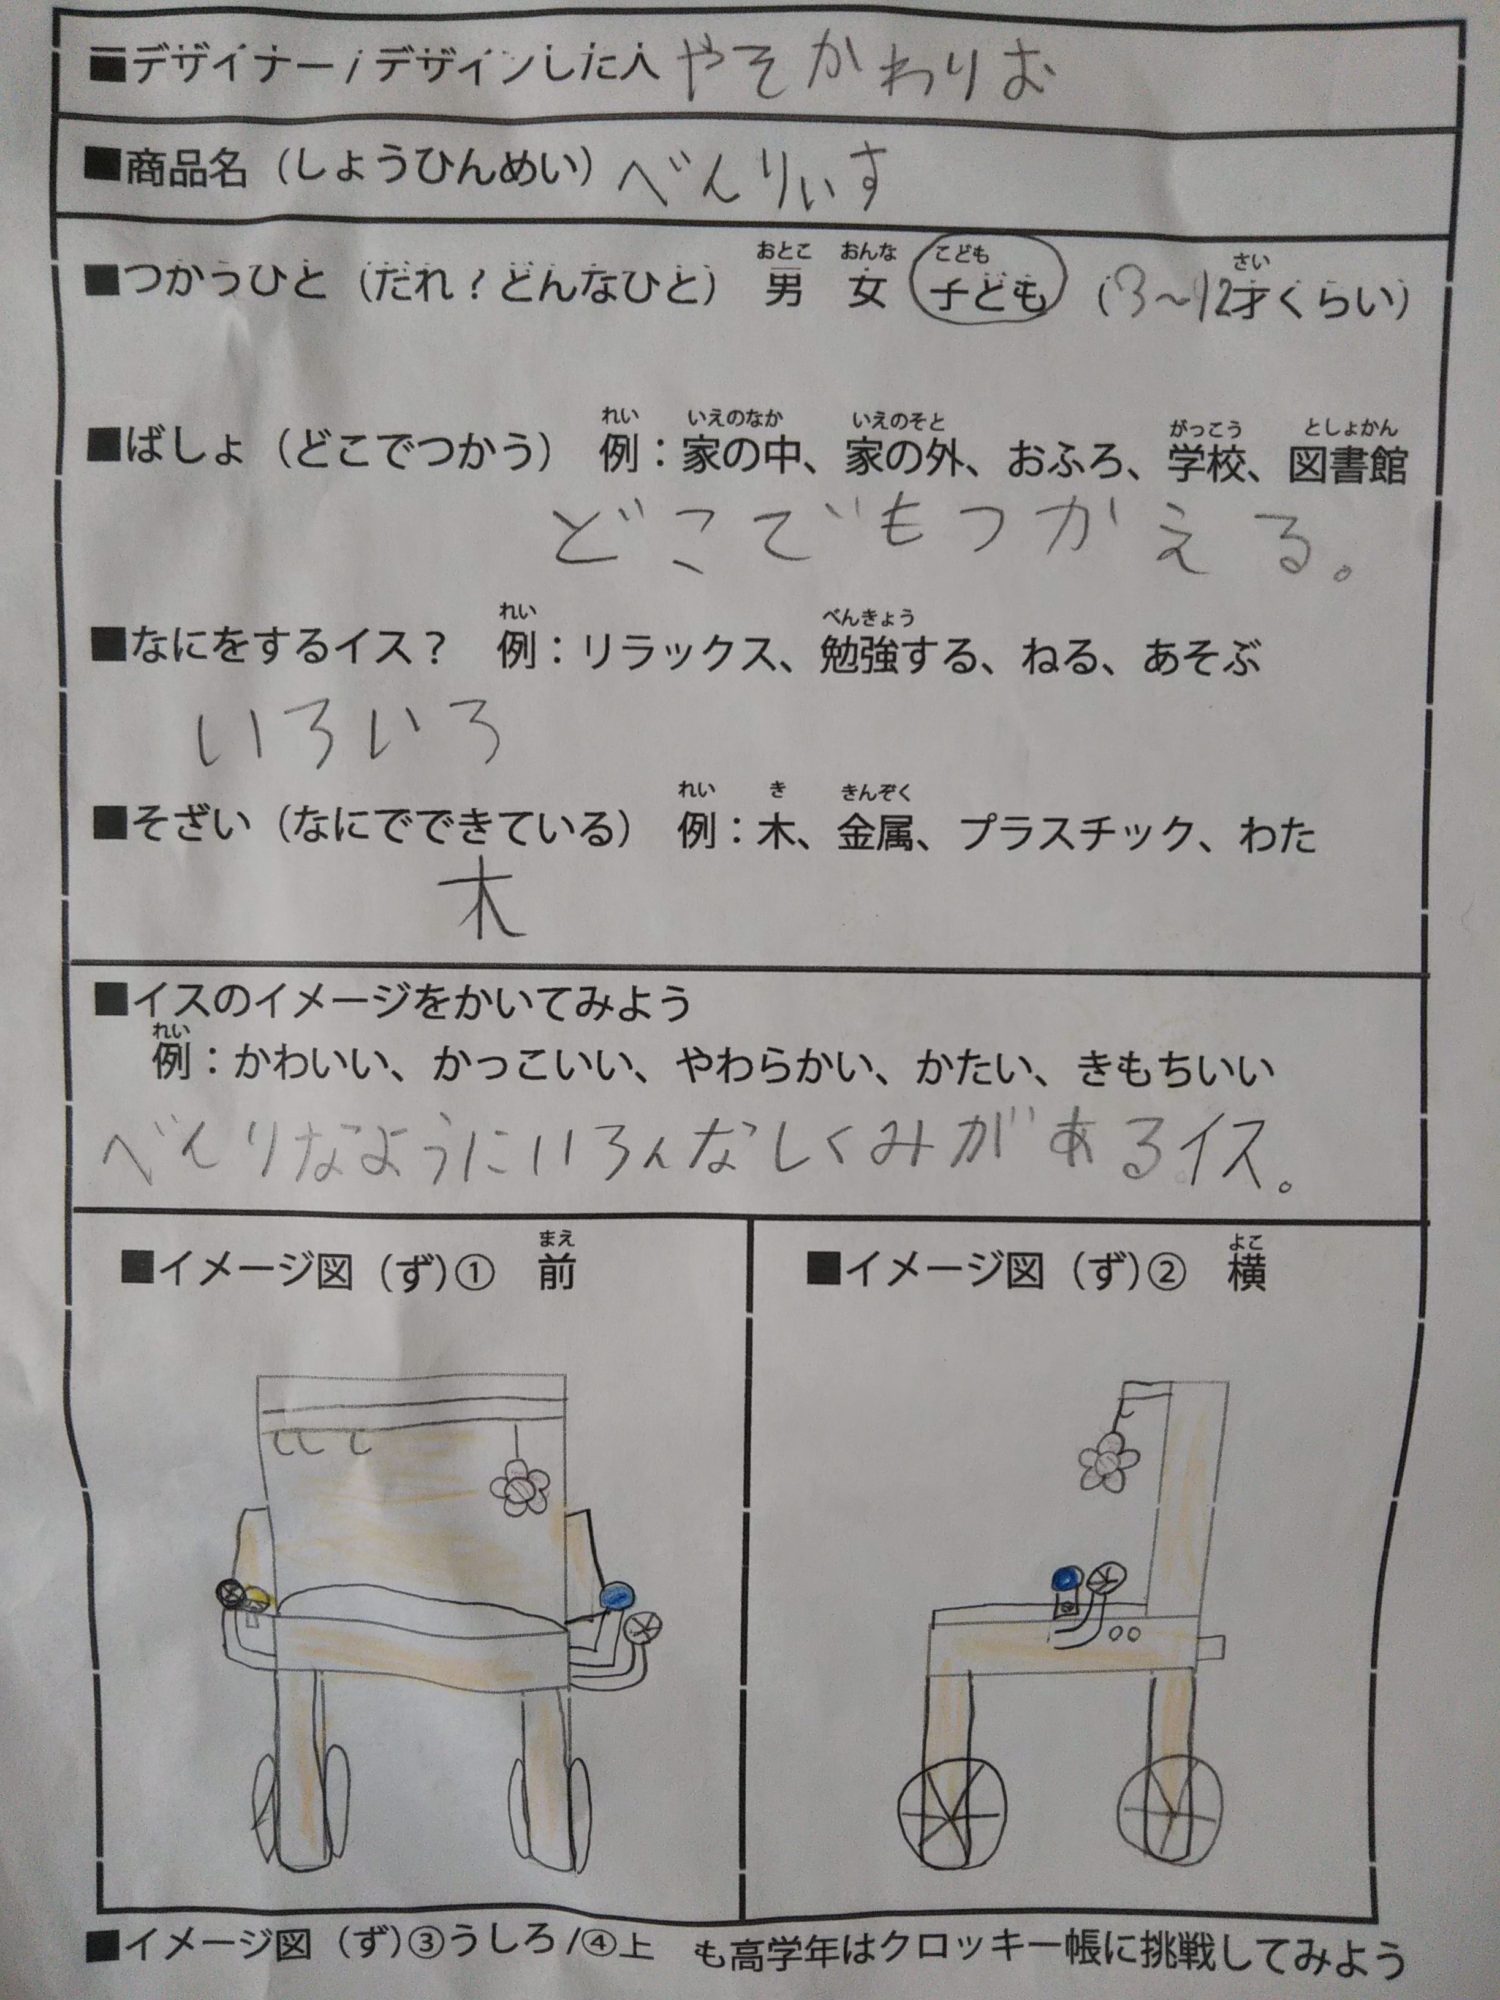 ■デザイナー/デザインした人 やそかわりお
■商品名（しょうひんめい）べんりいす
おとこ おんな こども さい
■つかうひと（だれ？どんなひと） 男 女 子ども （3〜12才くらい）
れい いえのなか いえのそと がっこう としょかん
■ばしょ（どこでつかう） 例：家の中、家の外、おふろ、学校、図書館
どこでもつかえる。
れい べんきょう
■なにをするイス？ 例：リラックス、勉強する、ねる、あそぶ
いろいろ
れい き きんぞく
■そざい（なにでできている） 例：木、金属、プラスチック、わた
木
■イスのイメージをかいてみよう
れい
例：かわいい、かっこいい、やわらかい、かたい、きもちいい
べんりなようにいろんなしくみがあるイス。
まえ
■イメージ図（ず）① 前
よこ
■イメージ図（ず）② 横
■イメージ図（ず）③うしろ/④上 も高学年はクロッキー帳に挑戦してみよう